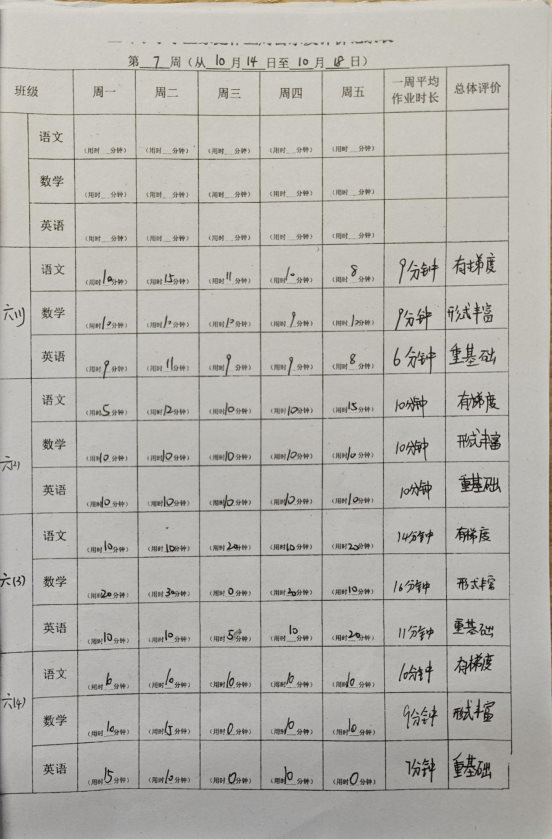 第 7 周（从 10 月 14 日至 10 月 18 日）
班级 周一 周二 周三 周四 周五 一周平均作业时长 总体评价
语文 （用时 分钟） （用时 分钟） （用时 分钟） （用时 分钟） （用时 分钟）
数学 （用时 分钟） （用时 分钟） （用时 分钟） （用时 分钟） （用时 分钟）
英语 （用时 分钟） （用时 分钟） （用时 分钟） （用时 分钟） （用时 分钟）
六(1) 语文 （用时10分钟） （用时15分钟） （用时11分钟） （用时10分钟） （用时8分钟） 9分钟 有梯度
数学 （用时10分钟） （用时10分钟） （用时10分钟） （用时9分钟） （用时10分钟） 9分钟 形式丰富
英语 （用时9分钟） （用时11分钟） （用时9分钟） （用时9分钟） （用时8分钟） 6分钟 重基础
六(2) 语文 （用时5分钟） （用时12分钟） （用时10分钟） （用时10分钟） （用时15分钟） 10分钟 有梯度
数学 （用时10分钟） （用时10分钟） （用时10分钟） （用时10分钟） （用时10分钟） 10分钟 形式丰富
英语 （用时10分钟） （用时10分钟） （用时10分钟） （用时10分钟） （用时10分钟） 10分钟 重基础
六(3) 语文 （用时10分钟） （用时10分钟） （用时20分钟） （用时10分钟） （用时20分钟） 14分钟 有梯度
数学 （用时20分钟） （用时30分钟） （用时0分钟） （用时20分钟） （用时10分钟） 16分钟 形式丰富
英语 （用时10分钟） （用时10分钟） （用时5分钟） （用时10分钟） （用时20分钟） 11分钟 重基础
六(4) 语文 （用时 分钟） （用时10分钟） （用时10分钟） （用时10分钟） （用时10分钟） 10分钟 有梯度
数学 （用时10分钟） （用时15分钟） （用时0分钟） （用时10分钟） （用时10分钟） 9分钟 形式丰富
英语 （用时15分钟） （用时10分钟） （用时0分钟） （用时10分钟） （用时0分钟） 7分钟 重基础